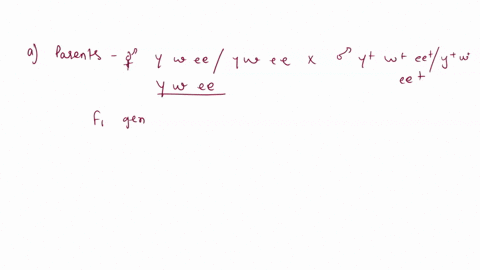 a) Parents - ♀ y w ee / y w e e x ♂ y+ w+ ee+/y+ w+
y w ee ee+
F1 gen